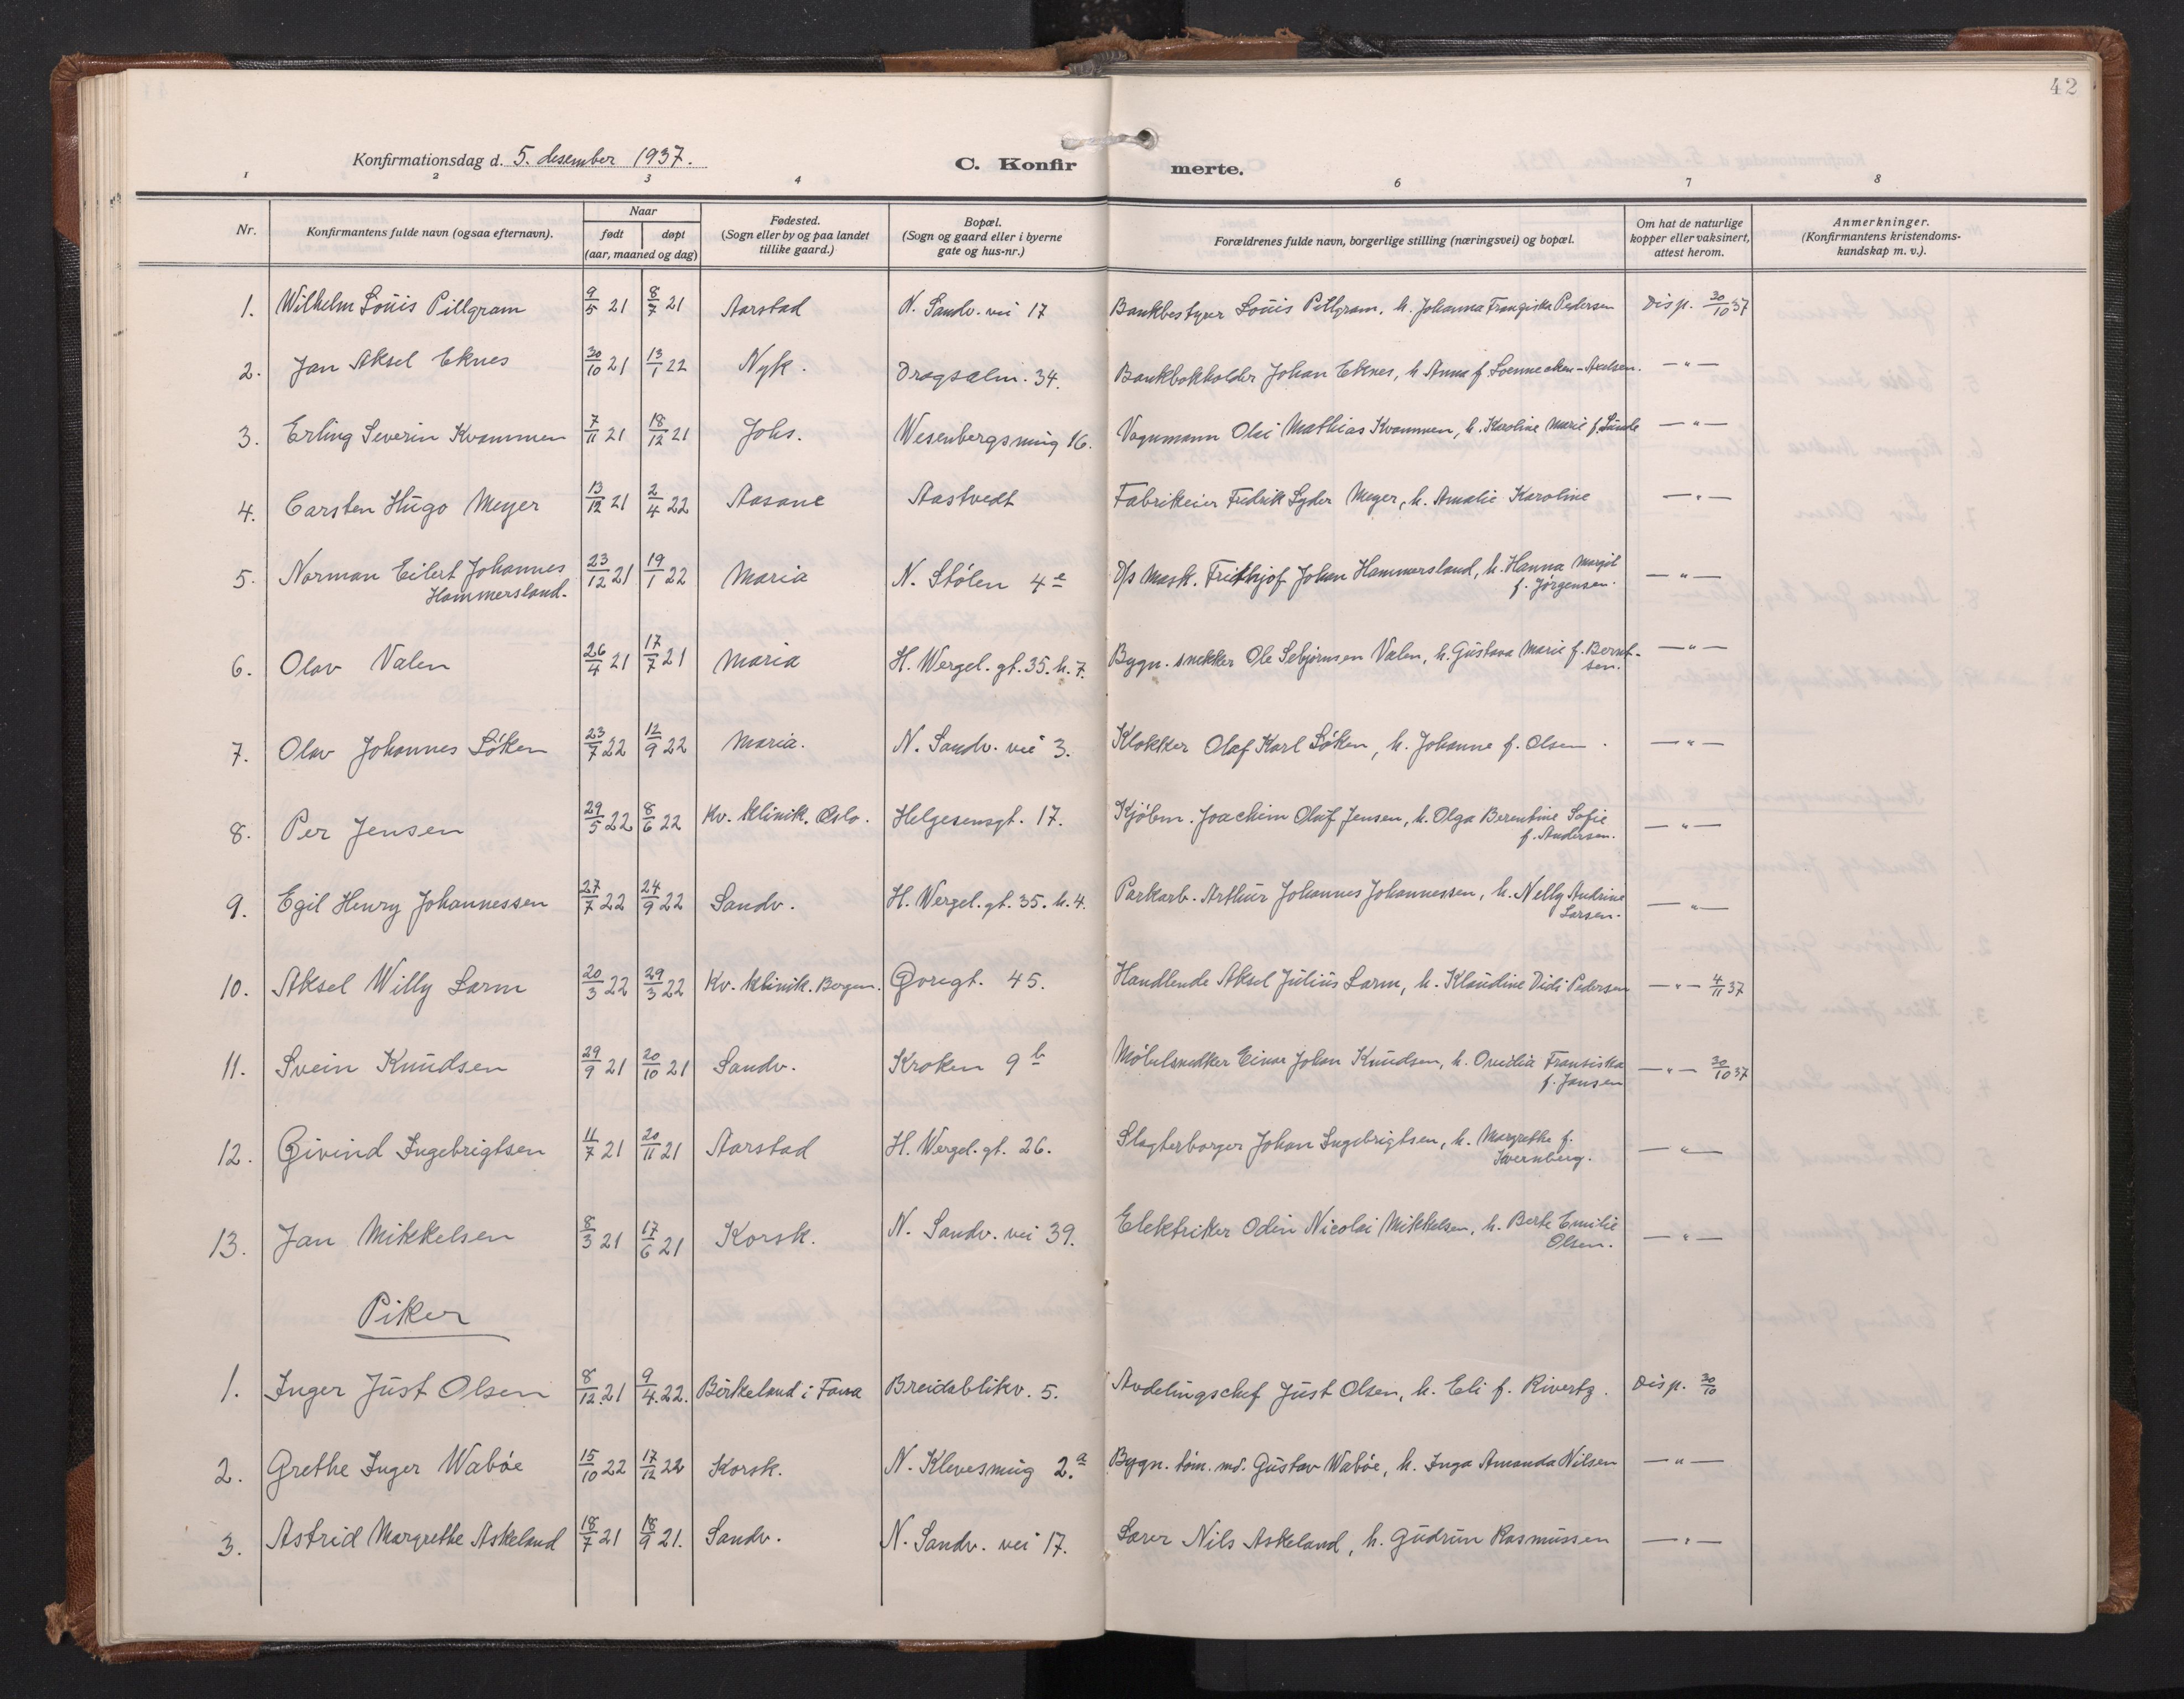 42
Konfirmationsdag d. 5. desember 1937.
C. Konfirmerte.
1 2 3 4 6 7 8
Nr.
Konfirmantens fulde navn (ogsaa efternavn).
Naar
født døpt
(aar, maaned og dag)
Fødested.
(Sogn eller by og paa landet
tillike gaard.)
Bopæl.
(Sogn og gaard eller i byerne
gate og hus-nr.)
Forældrenes fulde navn, borgerlige stilling (næringsvei) og bopæl.
Om hat de naturlige
kopper eller vaksinert,
attest herom.
Anmerkninger.
(Konfirmantens kristendoms-
kundskap m. v.).
1. Wilhelm Louis Pillgram 9/5 21 8/7 21 Aarstad N. Sandv. vei 17 Bankbestyrer Louis Pillgram, h. Johanna Frangiska Pedersen Disp. 30/10 37
2. Jan Aksel Eknes 30/10 21 13/1 22 Nyk. Dragsalm. 34. Bankbokholder Johan Eknes, h. Anna f. Loennecken-Axelsen. — " —
3. Erling Severin Kvammen 7/11 21 18/12 21 Johs. Wesenbergsmug 16. Vognmann Olai Mathias Kvammen, h. Karoline Marie f. Lunde — " —
4. Carsten Hugo Meyer 13/12 21 2/4 22 Aasane Aastvedt Fabrikeier Fredrik Lyder Meyer, h. Amalie Karoline — " —
5. Norman Eilert Johannes 23/12 21 19/1 22 Maria N. Stølen 4e D/s Mask. Frithjof Johan Hammersland, h. Hanna Margit — " —
Hammersland. f. Jørgensen.
6. Olav Valen 26/4 21 17/7 21 Maria H. Wergel. gt. 35. h. 7. Bygn. snekker Ole Sebjørnsen Valen, h. Gustava Marie f. Bernt- — " —
sen.
7. Olav Johannes Løken 23/7 22 12/9 22 Maria. N. Sandv. vei 3. Klokker Olaf Karl Løken, h. Johanne f. Olsen. — " —
8. Per Jensen 29/5 22 8/6 22 Kv. klinik. Oslo. Helgesensgt. 17. Kjøbm. Joachim Oluf Jensen, h. Olga Berentine Sofie — " —
f. Andersen.
9. Egil Henry Johannessen 27/7 22 24/9 22 Sandv. H. Wergel. gt. 35. h. 4. Parkarb. Arthur Johannes Johannessen, h. Nelly Andrine — " —
Larsen.
10. Aksel Willy Larm 20/3 22 29/3 22 Kv. klinik. Bergen. Goregt. 45. Handlende Aksel Julius Larm, h. Klaudine Vidi Pedersen — " — 4/11 37
11. Svein Knudsen 29/9 21 20/10 21 Sandv. Kroken 9b Møbelsnekker Einar Johan Knudsen, h. Ovidia Fransiska — " — 30/10 37
f. Jansen
12. Øivind Ingebrigtsen 11/7 21 20/11 21 Aarstad H. Wergel. gt. 26. Slagterborger Johan Ingebrigtsen, h. Margrethe f. — " —
Kvernberg.
13. Jan Mikkelsen 8/3 21 17/6 21 Korsk. N. Sandv. vei 39. Elektriker Odin Nicolai Mikkelsen, h. Berte Emilie — " —
Olsen.
Piker
1. Inger Just Olsen 8/12 21 9/4 22. Birkeland i Fana Breidablikv. 5. Avdelingschef Just Olsen, h. Eli f. Rivertz. Disp. 30/10
2. Grethe Inger Wabøe 15/10 22 17/12 22 Korsk. N. Klevesmug 2.a Bygn. tøm. md. Gustav Wabøe, h. Inga Amanda Nilsen — " —
3. Astrid Margrethe Askeland 18/7 21 18/9 21. Sandv. N. Sandv. vei 17. Lærer Nils Askeland, h. Gudrun Rasmussen — " —